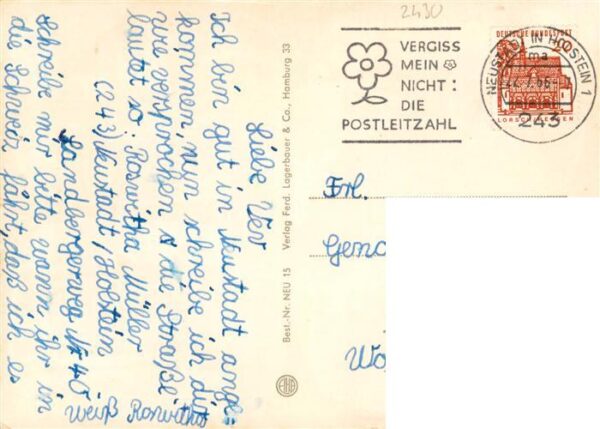 2430
VERGISS
MEIN
NICHT:
DIE
POSTLEITZAHL
DEUTSCHE BUNDESPOST
20
NEUSTADT IN HOLSTEIN 1
ma
243
LORSCH/HESSEN
Frl.
Geno
Wo
Best.-Nr. NEU 15 Verlag Ferd. Lagerbauer & Co., Hamburg 33
Liebe
Ich bin gut in Neustadt ange
kommen, nun schreibe ich dir
wie versprochen die Straße
lautet so: Roswitha Müller
(243) Neustadt/Holstein
Sandbergerweg Nr 45
Schreibe mir bitte wann ihr in
die Schweiz fährt, daß ich es
weiß Roswitha